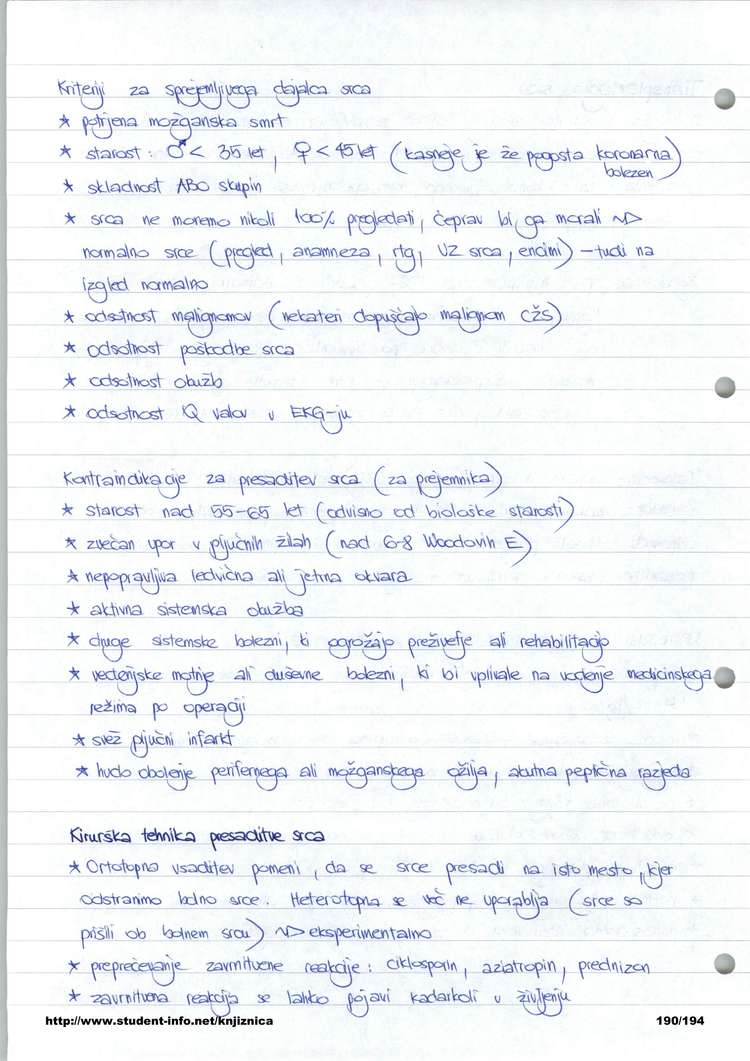 Kriteriji za sprejemljivega dajalca srca
* potrjena možganska smrt
* starost: ♂ < 35 let, ♀ < 45 let (kasneje je že pogosta koronarna
bolezen)
* skladnost ABO skupin
* srca ne moremo nikoli 100% pregledati, čeprav bi ga morali ~>
normalno srce (pregled, anamneza, rtg, UZ srca, encimi) – tudi na
izgled normalno
* odsotnost malignomov (nekateri dopuščajo malignom CŽS)
* odsotnost poškodbe srca
* odsotnost okužb
* odsotnost Q valov v EKG-ju
Kontraindikacije za presaditev srca (za prejemnika)
* starost nad 55-65 let (odvisno od biološke starosti)
* zvečan upor v pljučnih žilah (nad 6-8 Woodovih E)
* nepopravljiva ledvična ali jetrna okvara
* aktivna sistemska okužba
* druge sistemske bolezni, ki ogrožajo preživetje ali rehabilitacijo
* vedenjske motnje ali duševne bolezni, ki bi vplivale na vodenje medicinskega
režima po operaciji
* svež pljučni infarkt
* hudo obolenje perifernega ali možganskega ožilja, akutna peptična razjeda
Kirurška tehnika presaditve srca
* Ortotopna vsaditev pomeni, da se srce presadi na isto mesto, kjer
odstranimo bolno srce. Heterotopna se več ne uporablja (srce so
prišili ob bolnem srcu) ~> eksperimentalno
* preprečevanje zavrnitvene reakcije: ciklosporin, aziatropin, prednizon
* zavrnitvena reakcija se lahko pojavi kadarkoli v življenju
http://www.student-info.net/knjiznica 190/194